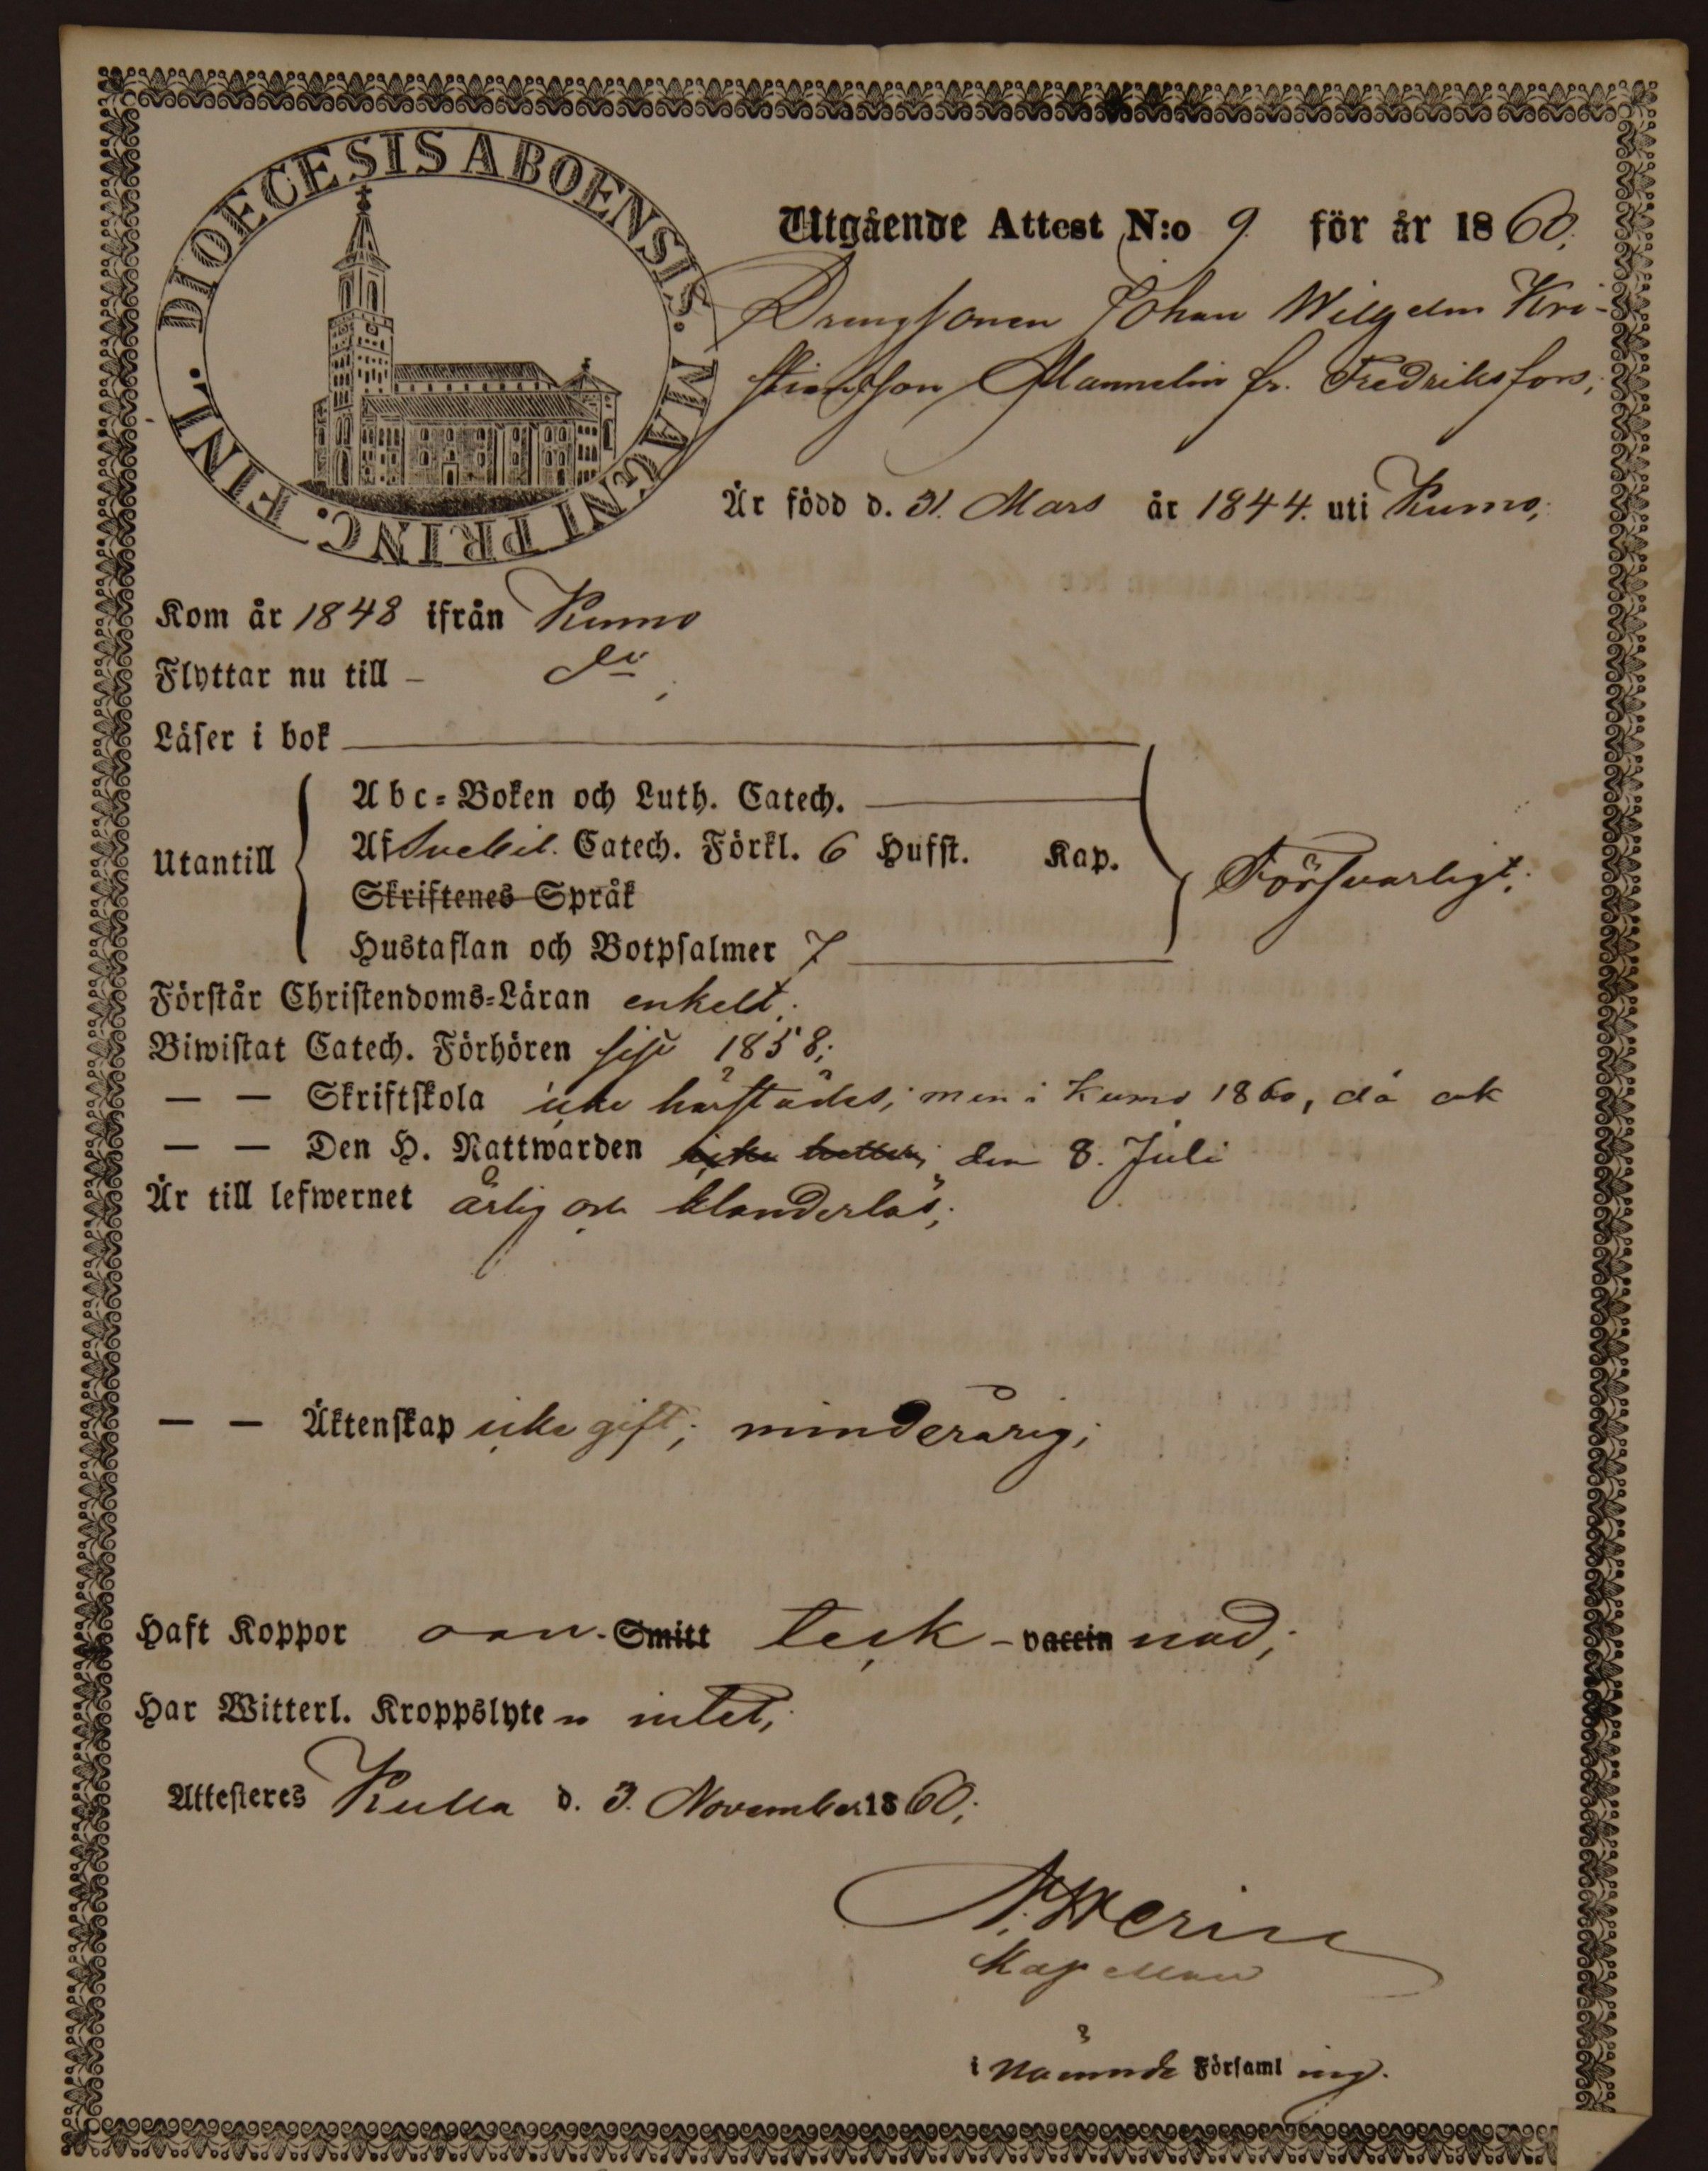 DIOECESIS ABOENSIS. MAGNI PRINC. FINL.
Utgående Attest N:o 9. för år 1860;
Drengsonen Johan Wilhelm Kri-
stiansson Mannelin fr. Fredriksfors;
Är född d. 31. Mars år 1844. uti Kumo;
Kom år 1848 ifrån Kumo
Flyttar nu till - do;
Läser i bok
Abc-Boken och Luth. Catech.
Utantill Af Svebil. Catech. Förkl. 6 Hufst. Kap. Försvarligt;
Skriftenes Språk
Hustaflan och Botpsalmer 7
Förstår Christendoms-Läran enkelt;
Biwistat Catech. Förhören sist 1858;
— — Skriftskola icke härstädes; men i Kumo 1860, då ock
— — Den H. Nattwarden icke heller; den 8. Juli
Är till lefwernet ärlig och klanderlös;
— — Äktenskap icke gift; minderårig;
Haft Koppor Smitt vaccin
Har Witterl. Kroppslyten intet;
Attesteres Kulla d. 3. November 1860;
Kapellan
i nämnde Församling.